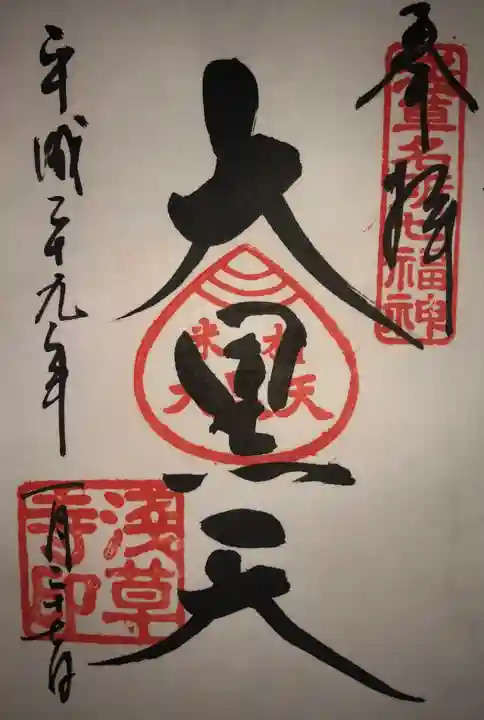 奉拝
浅草名所七福神
大黒天
米櫃
大黒天
平成二十九年
一月二十七日
浅草寺印